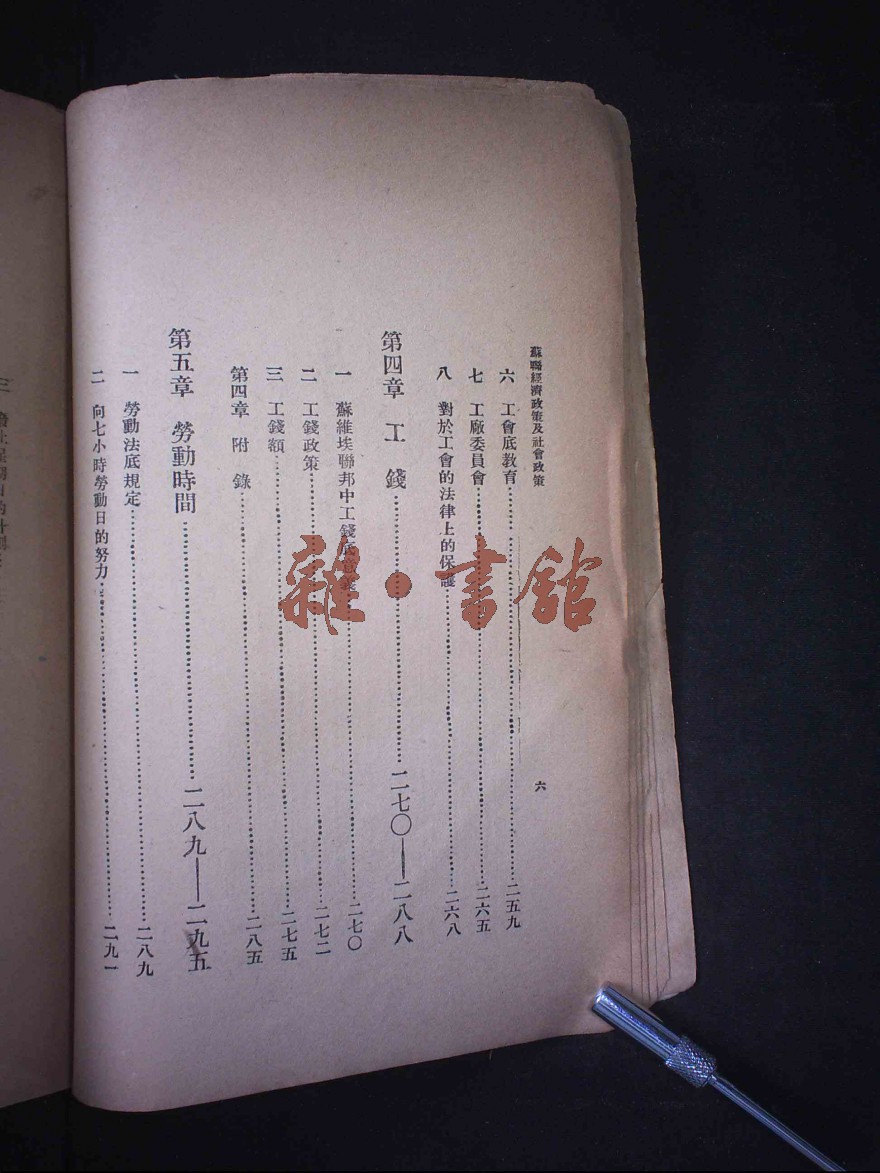 蘇聯經濟政策及社會政策
六
六 工會底教育 二五九
七 工廠委員會 二六五
八 對於工會的法律上的保護 二六八
第四章 工錢 二七〇——二八八
一 蘇維埃聯邦中工錢底 二七〇
二 工錢政策 二七二
三 工錢額 二七五
第四章附錄 二八五
第五章 勞動時間 二八九——二九五
一 勞動法底規定 二八九
二 向七小時勞動日的努力 二九一
三
雜·書館